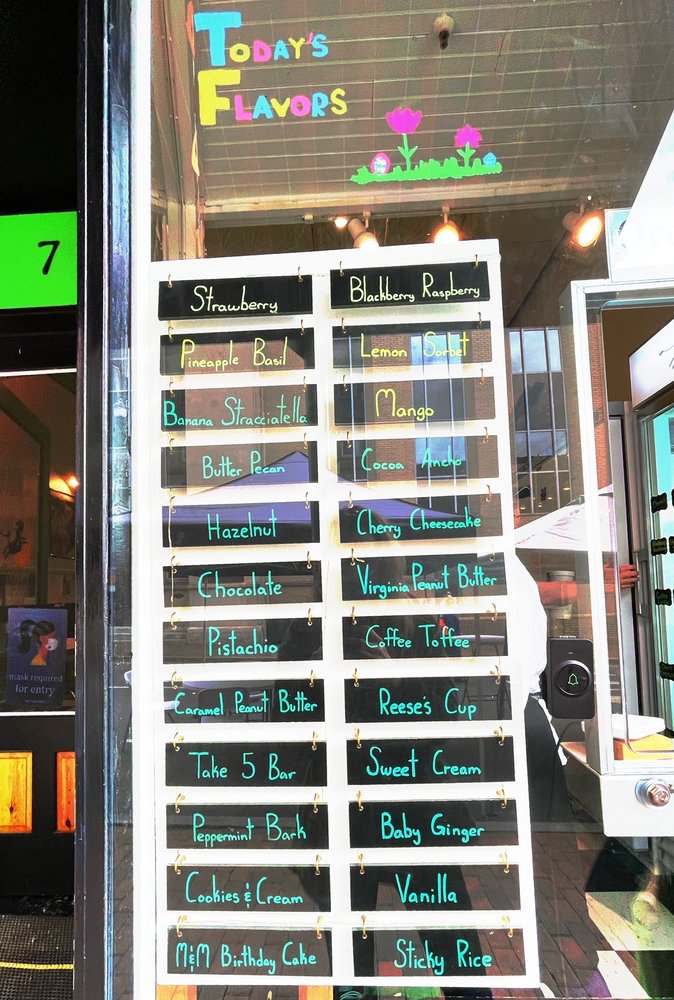 Today's
Flavors
7
Strawberry
Blackberry Raspberry
Pineapple Basil
Lemon Sorbet
Banana Stracciatella
Mango
Butter Pecan
Cocoa Ancho
Hazelnut
Cherry Cheesecake
Chocolate
Virginia Peanut Butter
Pistachio
Coffee Toffee
Caramel Peanut Butter
Reese's Cup
Take 5 Bar
Sweet Cream
Peppermint Bark
Baby Ginger
Cookies & Cream
Vanilla
M&M Birthday Cake
Sticky Rice
mask required
for entry